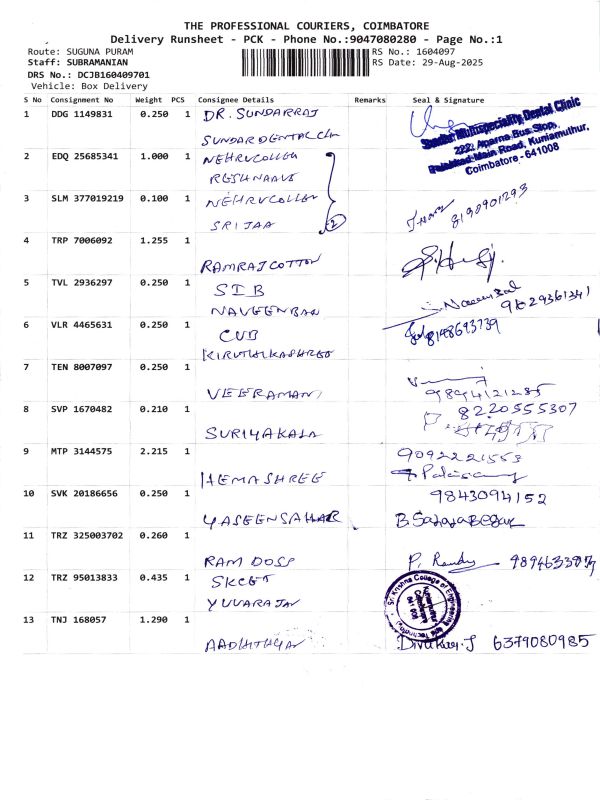 THE PROFESSIONAL COURIERS, COIMBATORE
Delivery Runsheet - PCK - Phone No.:9047080280 - Page No.:1
Route: SUGUNA PURAM
RS No.: 1604097
Staff: SUBRAMANIAN
RS Date: 29-Aug-2025
DRS No.: DCJB160409701
Vehicle: Box Delivery
S No Consignment No Weight PCS Consignee Details Remarks Seal & Signature
1 DDG 1149831 0.250 1 DR. SUNDARRAJ
SUNDARDENTALCLN
Multispeciality Dental Clinic
222, Aparna Bus Stop,
Palakkad Main Road, Kuniamuthur,
Coimbatore - 641008
2 EDQ 25685341 1.000 1 NEHRUCOLLEG
RESHNAAVS
3 SLM 377019219 0.100 1 NEHRUCOLLEG
SRIJAA
2
8198901293
4 TRP 7006092 1.255 1
RAMRAJCOTTON
5 TVL 2936297 0.250 1 SIB
NAVEENBAN
9629361341
6 VLR 4465631 0.250 1 CUB
KIRUTHIKASHREE
8148693739
7 TEN 8007097 0.250 1
VEERAMANI
9894121285
8 SVP 1670482 0.210 1
8220555307
SURIYAKALA
9 MTP 3144575 2.215 1
9092221553
HEMASHREE
10 SVK 20186656 0.250 1
9843094152
YASEENSAHAR
11 TRZ 325003702 0.260 1
RAM DOSS
P. Randy
12 TRZ 95013833 0.435 1 SKCET
YUVARAJAN
Sri Krishna College of Engineering
13 TNJ 168057 1.290 1
AADHITHYAN
Divakar.J 6379080985